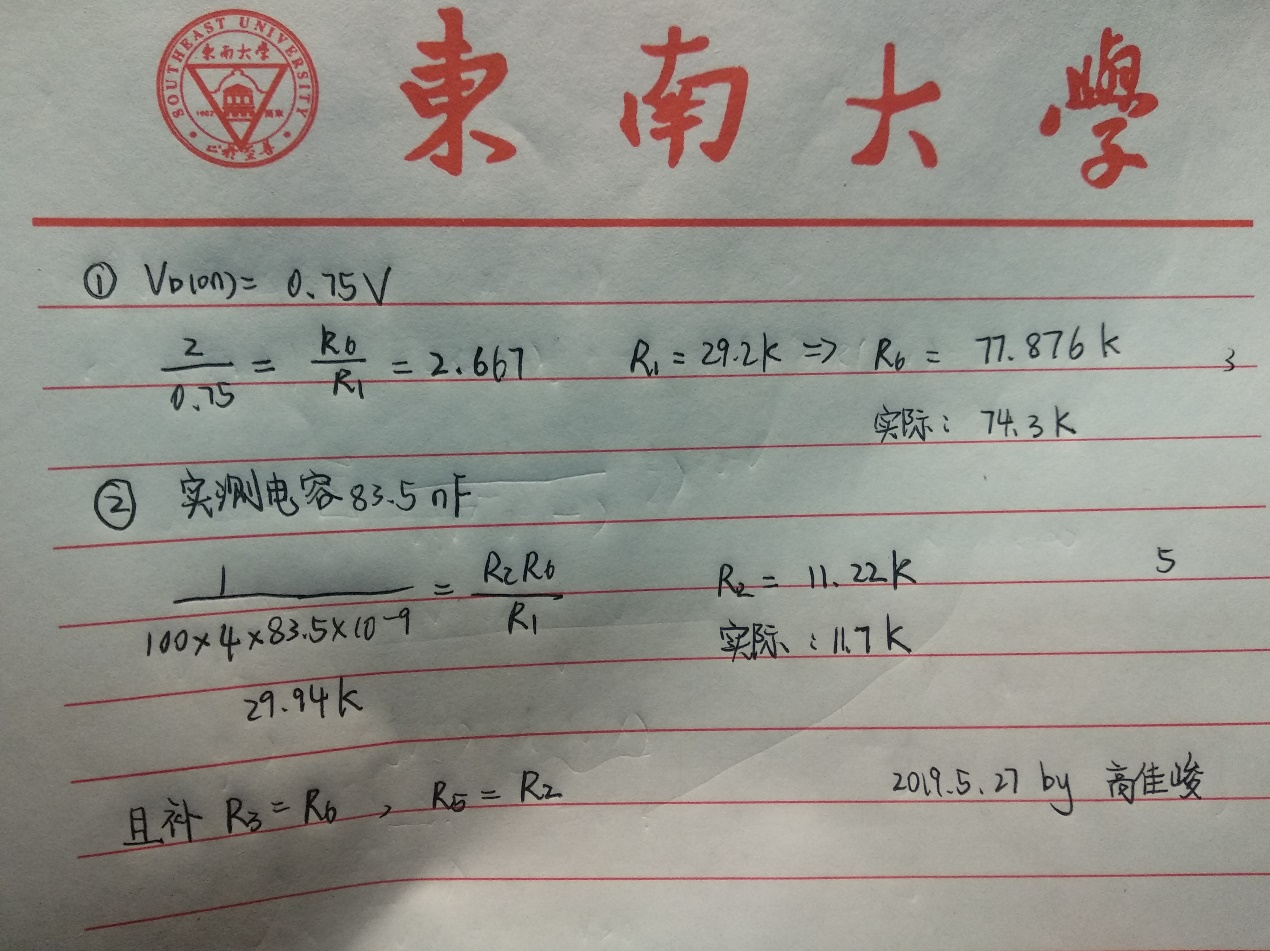 SOUTHEAST UNIVERSITY
東南大學
1902 南京
止於至善
東南大學
① VD(on) = 0.75V
2/0.75 = R6/R1 = 2.667 R1 = 29.2k => R6 = 77.876k 3
实际: 74.3k
② 实测电容83.5nF
1/(100×4×83.5×10^-9) = R2R6/R1 R2 = 11.22k 5
实际: 11.7k
29.94k
且补 R3 = R6 , R5 = R2
2019.5.27 by 高佳峻